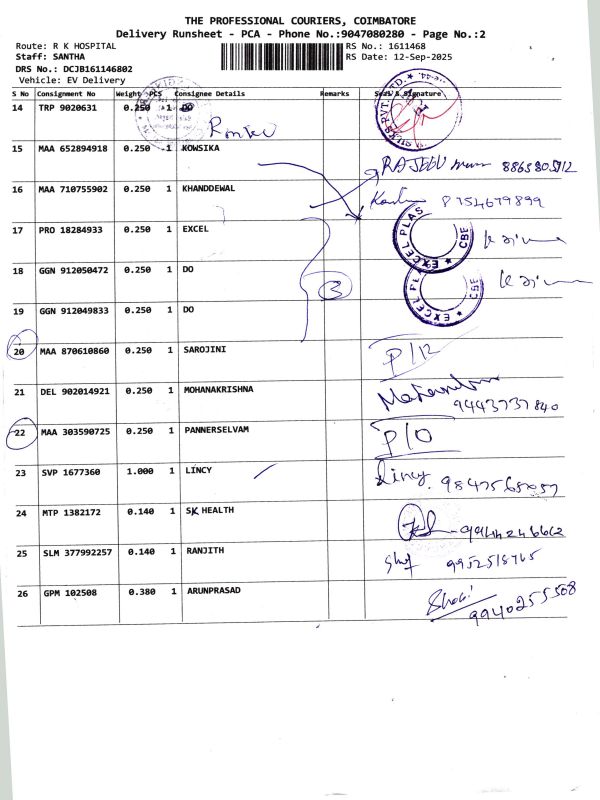 THE PROFESSIONAL COURIERS, COIMBATORE
Delivery Runsheet - PCA - Phone No.:9047080280 - Page No.:2
Route: R K HOSPITAL
RS No.: 1611468
Staff: SANTHA
RS Date: 12-Sep-2025
DRS No.: DCJB161146802
Vehicle: EV Delivery
S No Consignment No Weight PCS Consignee Details Remarks Seal & Signature
14 TRP 9020631 0.250 1 DO
15 MAA 652894918 0.250 1 KOWSIKA
RAJEEV
16 MAA 710755902 0.250 1 KHANDDEWAL
8754679899
17 PRO 18284933 0.250 1 EXCEL
EXCEL PLAS CBE
18 GGN 912050472 0.250 1 DO
3
EXCEL PL CBE
19 GGN 912049833 0.250 1 DO
20 MAA 870610860 0.250 1 SAROJINI
P/12
21 DEL 902014921 0.250 1 MOHANAKRISHNA
9443737840
22 MAA 303590725 0.250 1 PANNERSELVAM
P/O
23 SVP 1677360 1.000 1 LINCY
Lincy.
24 MTP 1382172 0.140 1 SK HEALTH
9944246662
25 SLM 377992257 0.140 1 RANJITH
9952518765
26 GPM 102508 0.380 1 ARUNPRASAD
9940255508